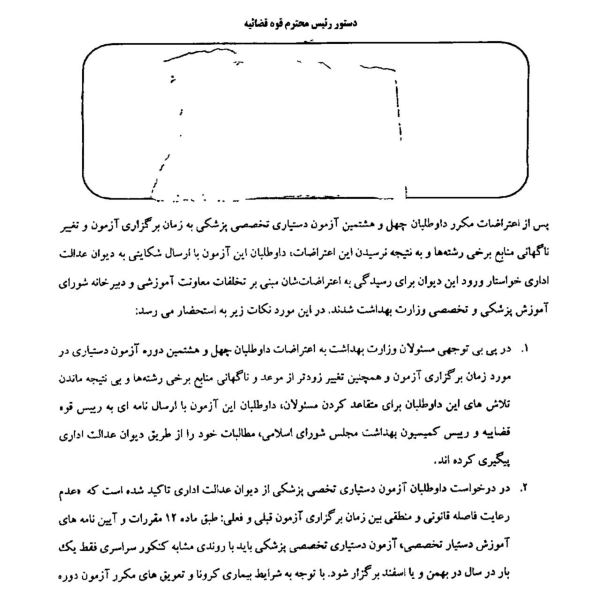 دستور رئیس محترم قوه قضائیه
پس از اعتراضات مکرر داوطلبان چهل و هشتمین آزمون دستیاری تخصصی پزشکی به زمان برگزاری آزمون و تغییر
ناگهانی منابع برخی رشته‌ها و به نتیجه نرسیدن این اعتراضات، داوطلبان این آزمون با ارسال شکایتی به دیوان عدالت
اداری خواستار ورود این دیوان برای رسیدگی به اعتراضات‌شان مبنی بر تخلفات معاونت آموزشی و دبیرخانه شورای
آموزش پزشکی و تخصصی وزارت بهداشت شدند. در این مورد نکات زیر به استحضار می رسد:
۱. در پی بی توجهی مسئولان وزارت بهداشت به اعتراضات داوطلبان چهل و هشتمین دوره آزمون دستیاری در
مورد زمان برگزاری آزمون و همچنین تغییر زودتر از موعد و ناگهانی منابع برخی رشته‌ها و بی نتیجه ماندن
تلاش های این داوطلبان برای متقاعد کردن مسئولان، داوطلبان این آزمون با ارسال نامه ای به رییس قوه
قضاییه و رییس کمیسیون بهداشت مجلس شورای اسلامی، مطالبات خود را از طریق دیوان عدالت اداری
پیگیری کرده اند.
۲. در درخواست داوطلبان آزمون دستیاری تخصی پزشکی از دیوان عدالت اداری تاکید شده است که «عدم
رعایت فاصله قانونی و منطقی بین زمان برگزاری آزمون قبلی و فعلی: طبق ماده ۱۲ مقررات و آیین نامه های
آموزش دستیار تخصصی، آزمون دستیاری تخصصی پزشکی باید با روندی مشابه کنکور سراسری فقط یک
بار در سال در بهمن و یا اسفند برگزار شود. با توجه به شرایط بیماری کرونا و تعویق های مکرر آزمون دوره